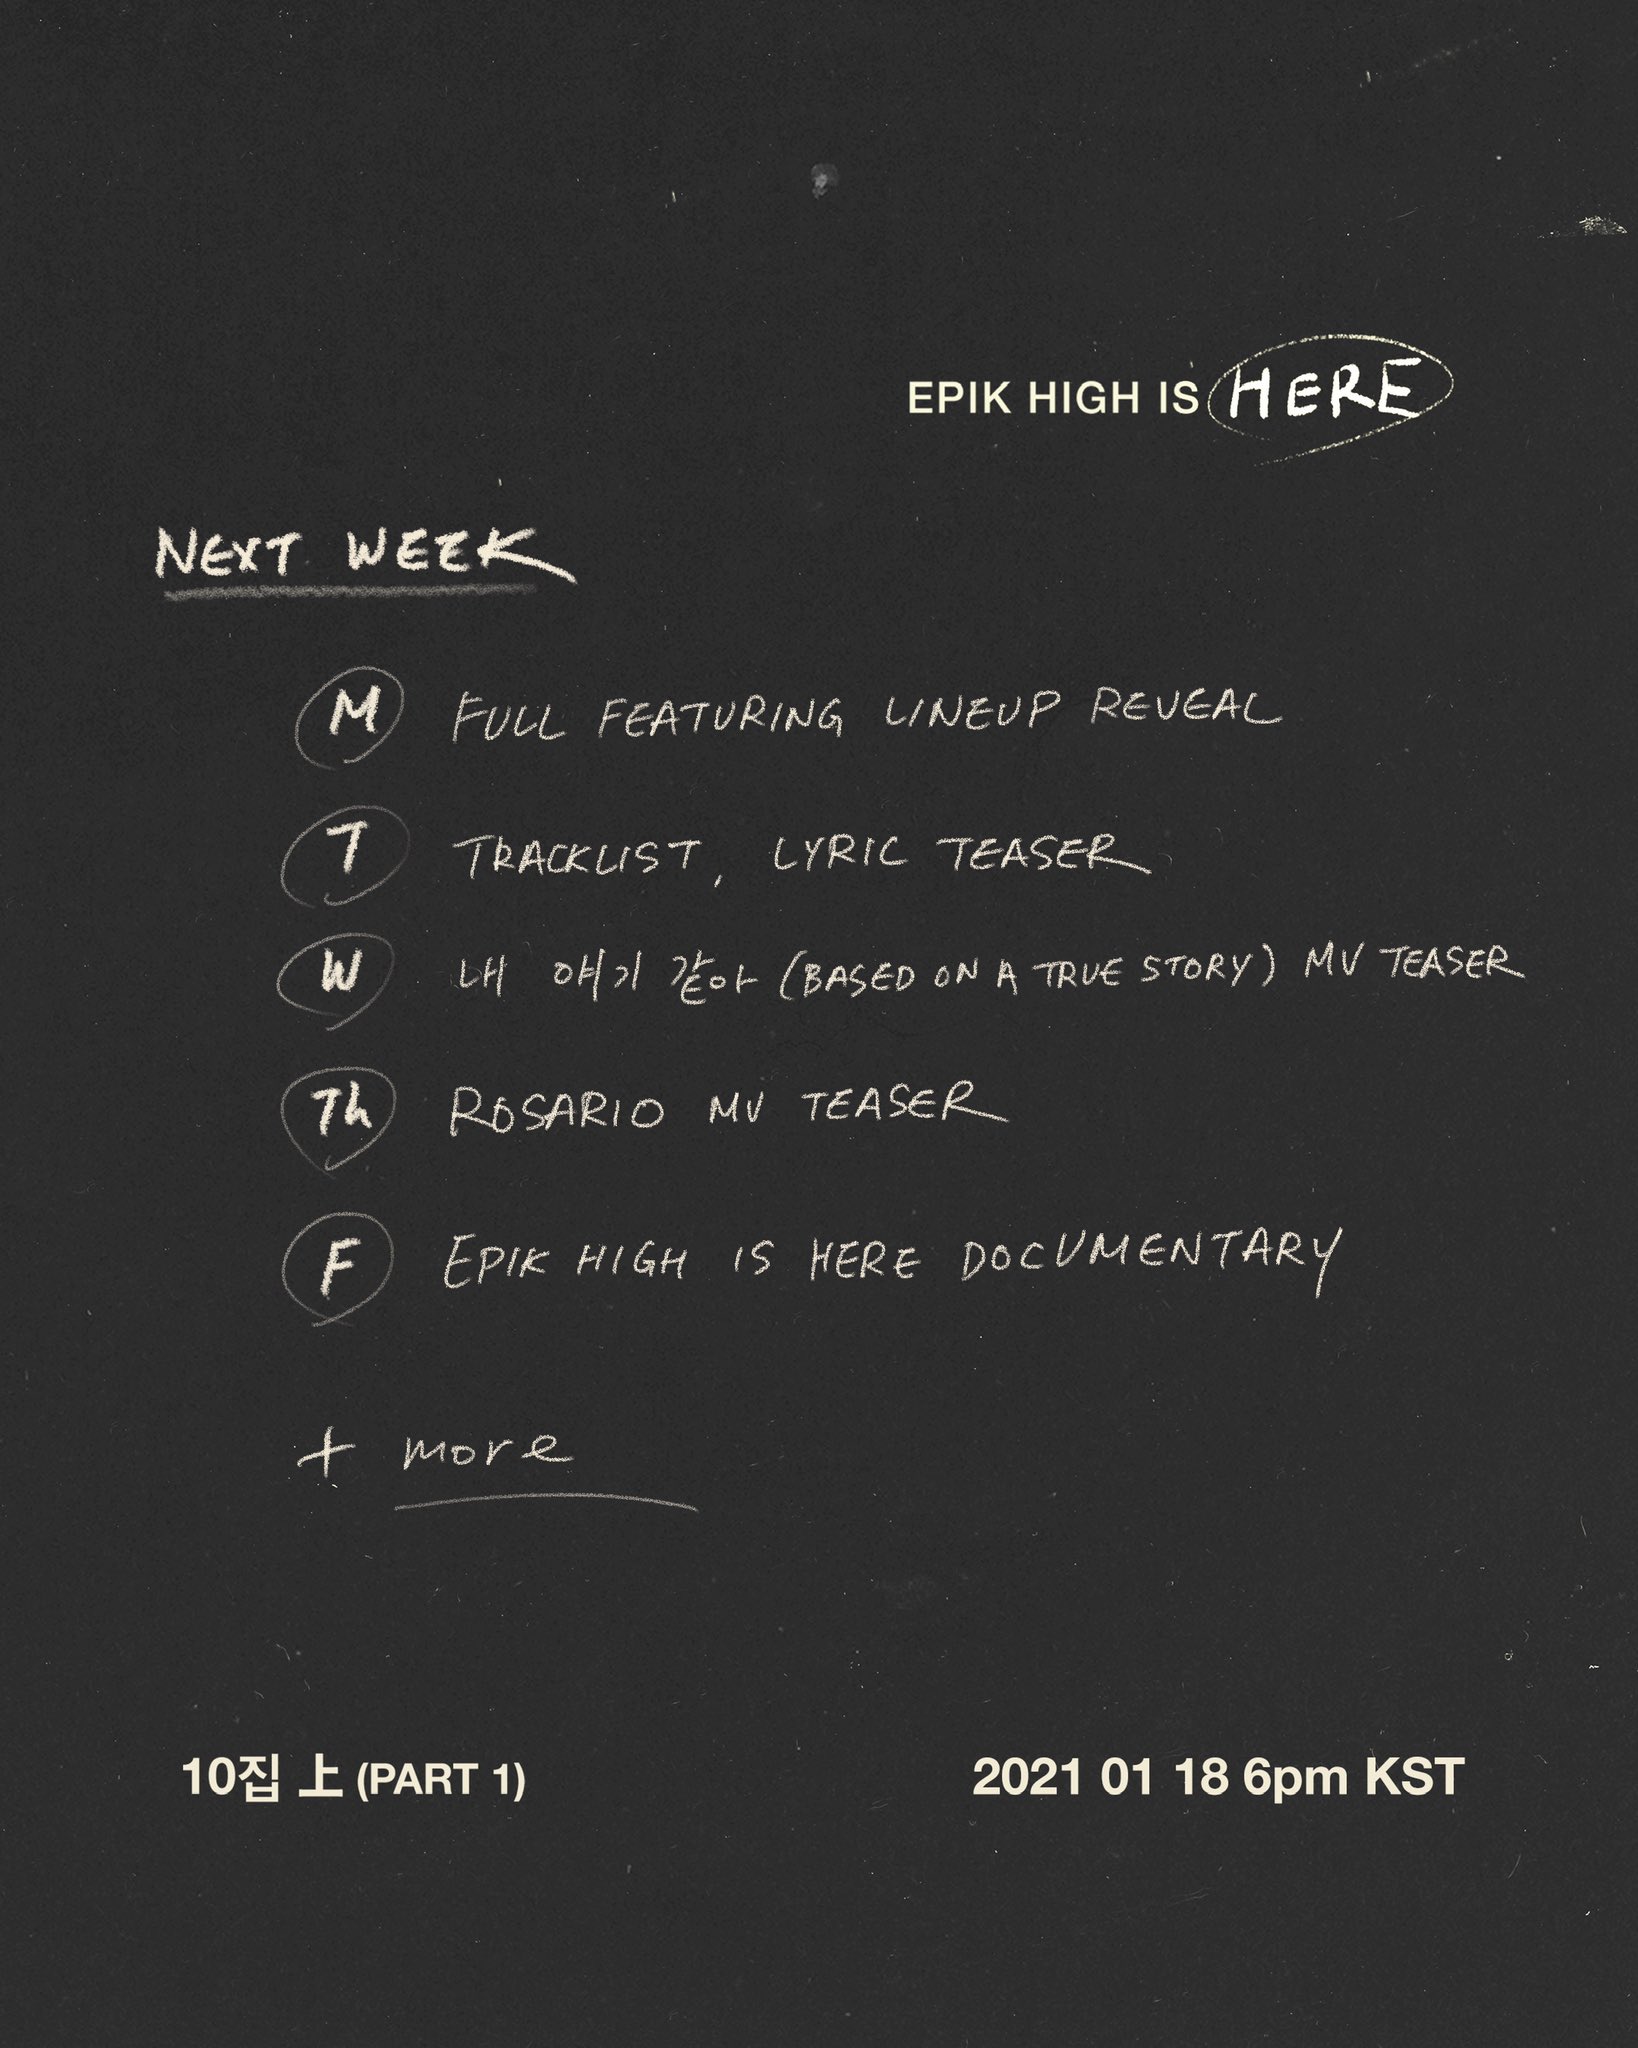 EPIK HIGH IS HERE
NEXT WEEK
M FULL FEATURING LINEUP REVEAL
T TRACKLIST, LYRIC TEASER
W 내 얘기 같아 (BASED ON A TRUE STORY) MV TEASER
Th ROSARIO MV TEASER
F EPIK HIGH IS HERE DOCUMENTARY
+ more
10집 上 (PART 1)
2021 01 18 6pm KST